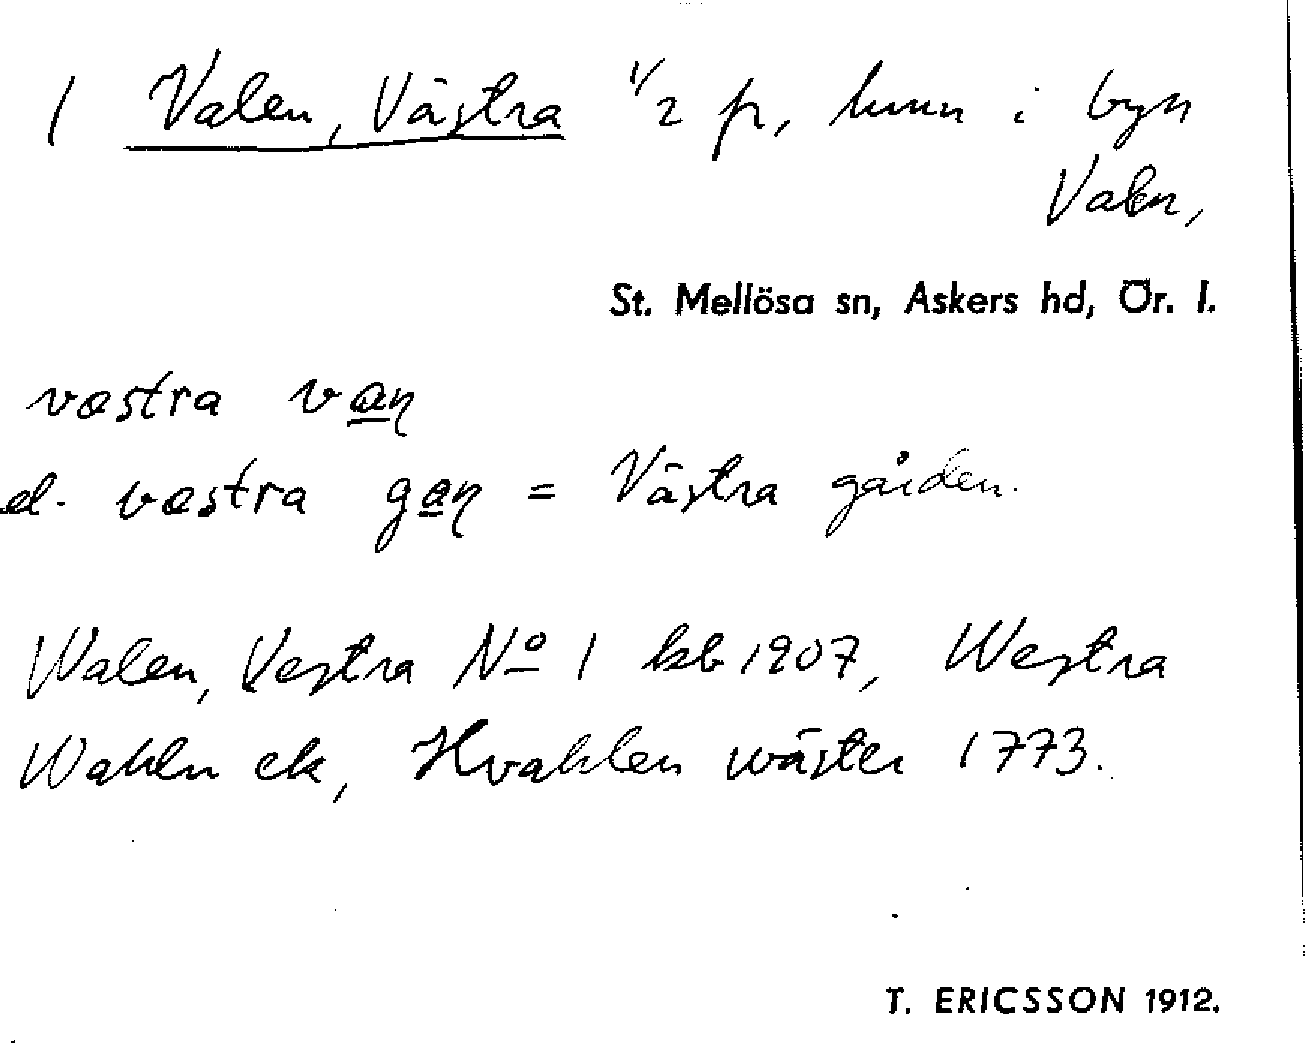 1 Valen, Västra 1/2 fr, hmn i byn
Valen,
St. Mellösa sn, Askers hd, Ör. l.
væstra van
el. væstra gan = Västra gården.
Walen, Vestra No 1 kb 1907, Westra
Wahln ek, Hvahlen wäster 1773.
T. ERICSSON 1912.